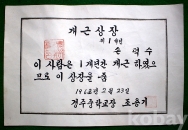 kobay
개근상장
제1학년
손덕수
이 사람은 1개년간 개근 하였
으므로 이 상장을 줌
196 년 2월 23일
경주중학교장 조용기